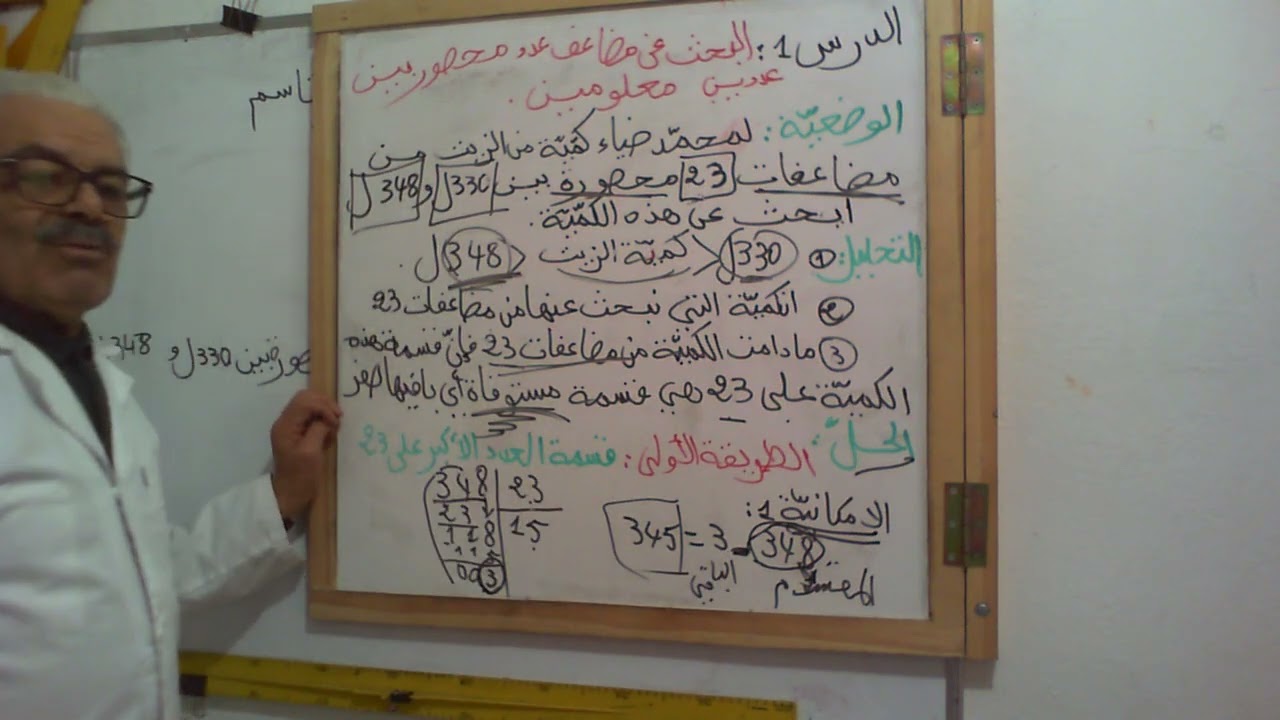 الدرس 1: البحث عن مضاعف عدد محصور بين
عددين معلومين.
الوضعيّة: لمحمّد ضياء كمّيّة من الزيت من
مضاعفات 23 محصورة بين 330ل و 348ل
ابحث عن هذه الكمّيّة.
التحليل: 1 330ل < كميّة الزيت < 348 ل.
2 الكميّة التي نبحث عنها من مضاعفات 23
3 مادامت الكميّة من مضاعفات 23 فإنّ قسمة هذه
الكميّة على 23 هي قسمة مستوفاة أي باقيها صفر
الحلّ: الطريقة الأولى: قسمة العدد الأكبر على 23
الامكانيّة 1:
348 - 3 = 345
المقسوم الباقي
348 23
23 15
118
115
003
اسم
ين 330ل و 348